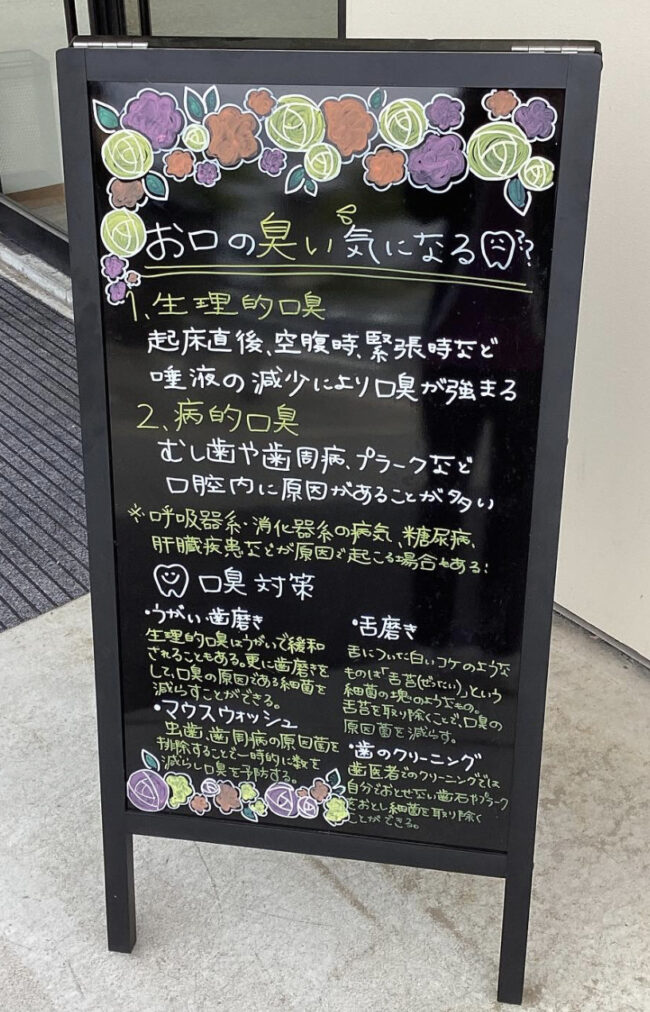 お口の臭い気になる??
1、生理的口臭
起床直後、空腹時、緊張時など
唾液の減少により口臭が強まる
2、病的口臭
むし歯や歯周病、プラークなど
口腔内に原因があることが多い
※呼吸器系・消化器系の病気、糖尿病、
肝臓疾患などが原因で起こる場合もある:
口臭対策
・うがい・歯磨き
生理的口臭はうがいで緩和
されることもある。更に歯磨きを
して、口臭の原因である細菌を
減らすことができる。
・マウスウォッシュ
虫歯、歯周病の原因菌を
排除することで一時的に数を
減らし口臭を予防する。
・舌磨き
舌についた白いコケのような
ものは「舌苔(ぜったい)」という
細菌の塊のようなもの。
舌苔を取り除くことで、口臭の
原因菌を減らす。
・歯のクリーニング
歯医者でのクリーニングでは
自分でおとせない歯石やプラーク
をおとし細菌を取り除く
ことができる。